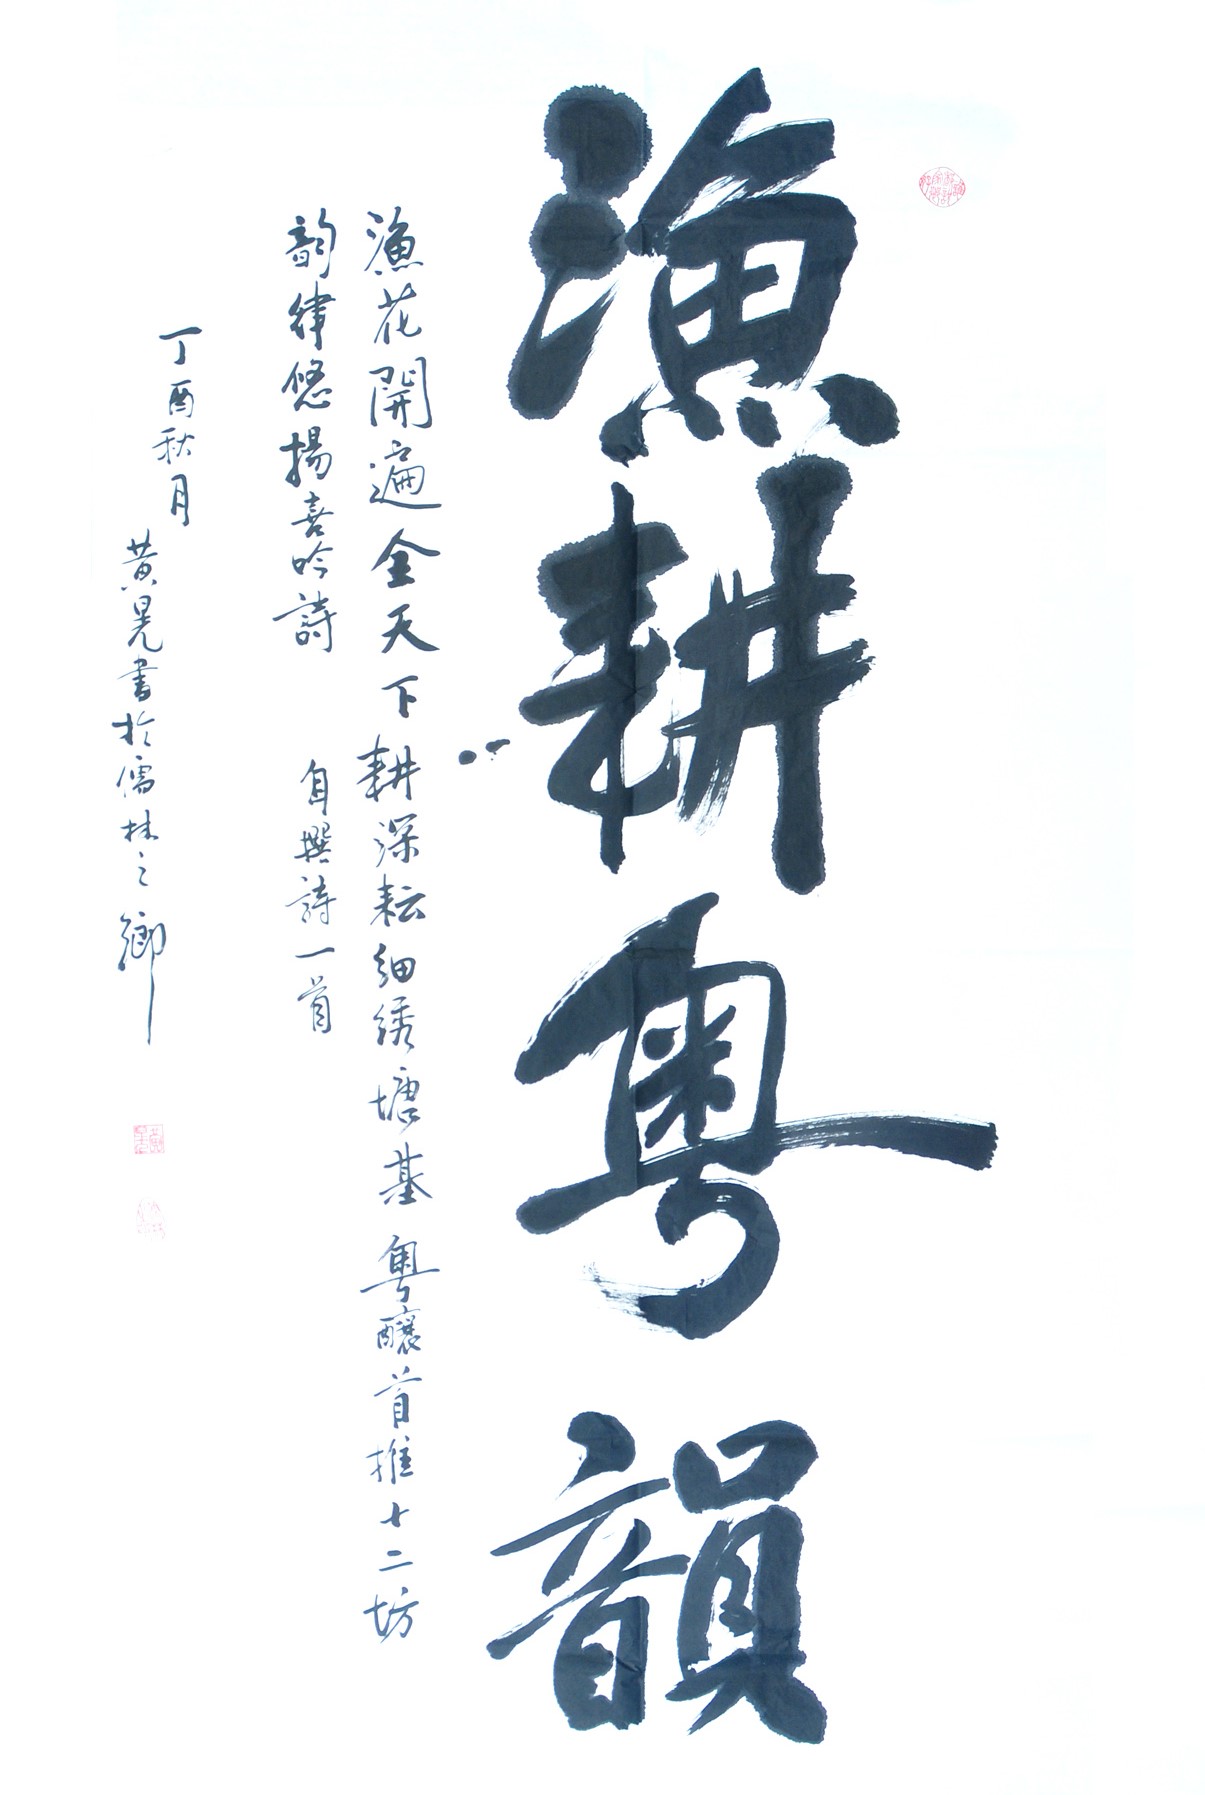 漁耕粤韻
漁花開遍全天下耕深耘細綉塘基粤釀首推十二坊
韵律悠揚喜吟詩 自撰詩一首
丁酉秋月
黄晃書於儒林之鄉